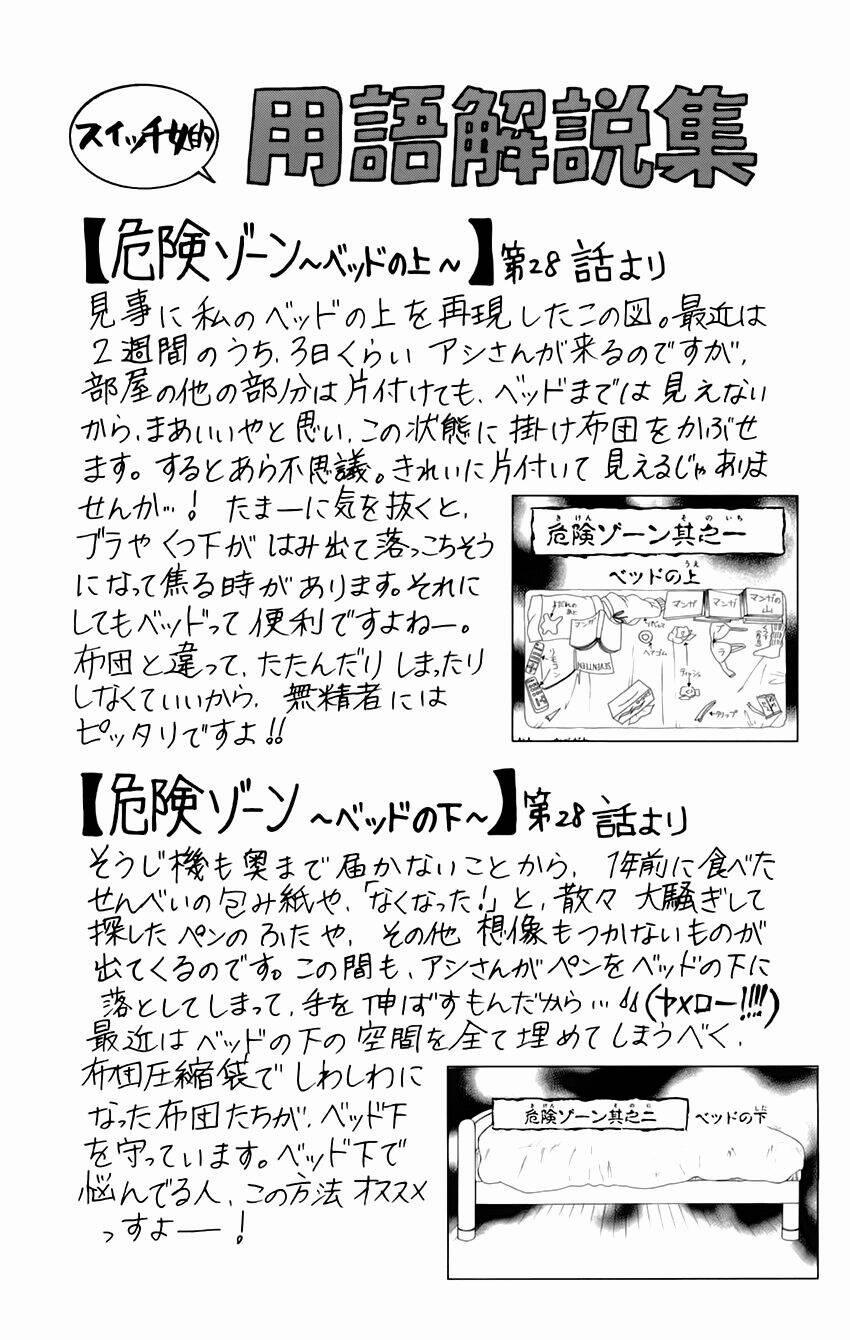 スイッチ女的
用語解説集
【危険ゾーン～ベッドの上～】第28話より
見事に私のベッドの上を再現したこの図。最近は
2週間のうち、3日くらいアシさんが来るのですが、
部屋の他の部分は片付けても、ベッドまでは見えない
から、まあいいやと思い、この状態に掛け布団をかぶせ
ます。するとあら不思議。きれいに片付いて見えるじゃありま
せんか…！たまーに気を抜くと、
ブラやくつ下がはみ出て落っこちそう
になって焦る時があります。それに
してもベッドって便利ですよねー。
布団と違って、たたんだりしまったり
しなくていいから、無精者には
ピッタリですよ!!
きけん そのいち
危険ゾーン其之一
うえ
ベッドの上
マンガ
マンガ
マンガの山
マンガ
SEVENTEEN
リモコン
ヘアゴム
ティッシュ
ブラ
クリップ
【危険ゾーン～ベッドの下～】第28話より
そうじ機も奥まで届かないことから、1年前に食べた
せんべいの包み紙や、「なくなった！」と、散々大騒ぎして
探したペンのふたや、その他想像もつかないものが
出てくるのです。この間も、アシさんがペンをベッドの下に
落としてしまって、手を伸ばすもんだから…(ヤメロー!!!!)
最近はベッドの下の空間を全て埋めてしまうべく、
布団圧縮袋でしわしわに
なった布団たちが、ベッド下
を守っています。ベッド下で
悩んでる人、この方法オススメ
っすよー！
きけん そのに
危険ゾーン其之二
した
ベッドの下